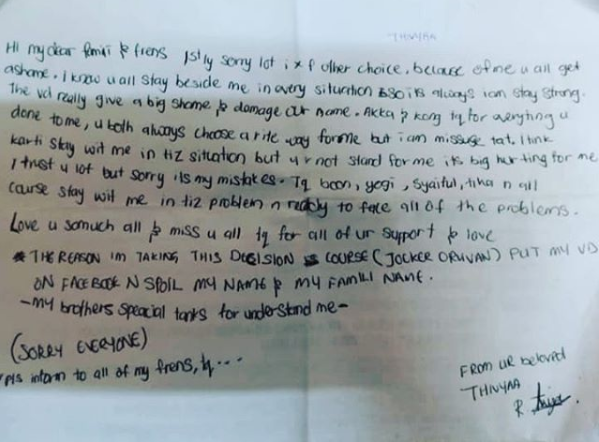 THIVYAA
Hi my dear famili & frens 1stly sorry lot i x f other choice, because of me u all get
ashame. I know u all stay beside me in every situation & so its always iam stay strong.
The vd really give a big shame & damage our name. Akka & kong tq for everyting u
done to me, u both always choose a rite way for me but i am missuse tat. I tink
karti stay wit me in tiz situation but u r not stand for me its big hurting for me
I trust u lot but sorry its my mistakes. Tq boon, yogi, syaiful, tiha n all
cause stay wit me in tiz problem n ready to face all of the problems.
Love u somuch all & miss u all tq for all of ur support & love
* THE REASON IM TAKING THIS DECISION COURSE (JOCKER ORUVAN) PUT MY VD
ON FACEBOOK N SPOIL MY NAME & MY FAMILI NAME.
- MY brothers speacial tanks for understand me -
(SORRY EVERYONE)
pls inform to all of my frens, tq ...
FROM UR beloved
THIVYAA
R